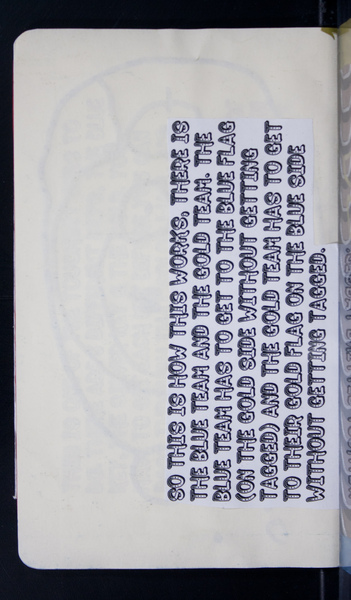 SO THIS IS HOW THIS WORKS, THERE IS
THE BLUE TEAM AND THE GOLD TEAM. THE
BLUE TEAM HAS TO GET TO THE BLUE FLAG
(ON THE GOLD SIDE WITHOUT GETTING
TAGGED) AND THE GOLD TEAM HAS TO GET
TO THEIR GOLD FLAG ON THE BLUE SIDE
WITHOUT GETTING TAGGED.